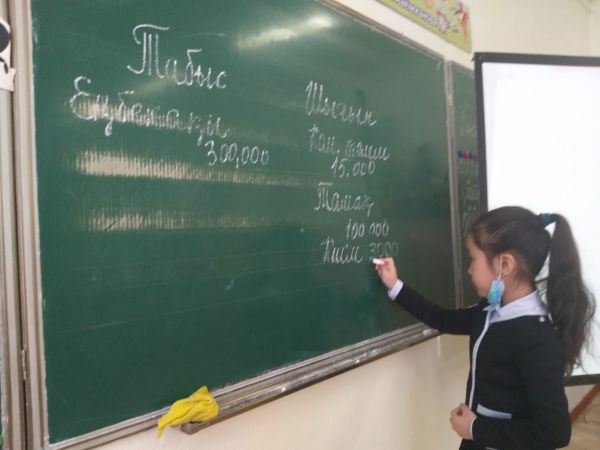 Табыс
Еңбекақы
300,000
Шығын
Ком. төлем
15.000
Тамақ
100 000
Киім 3000